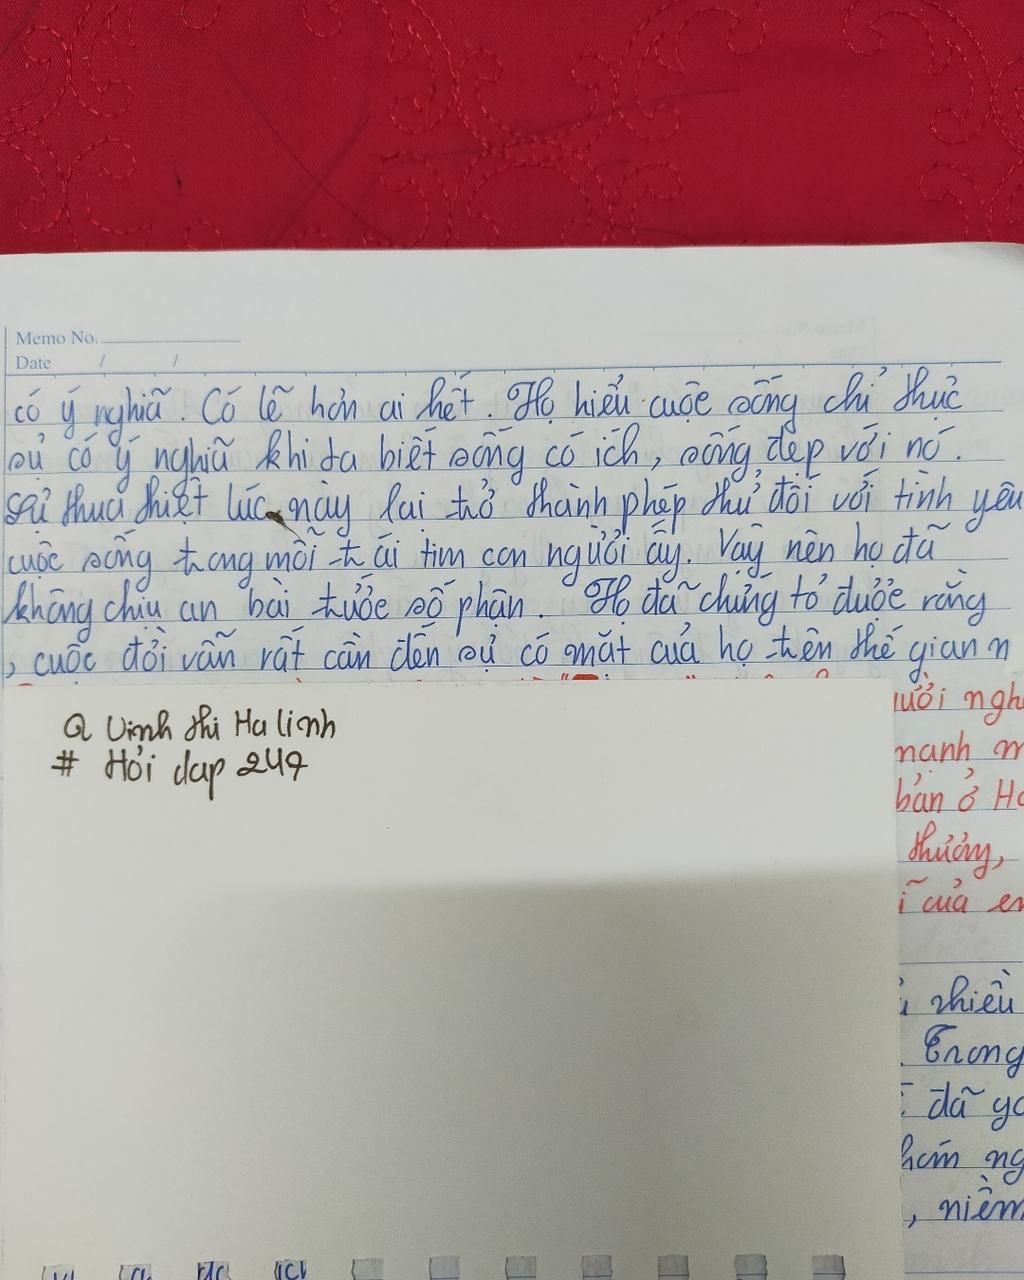 Memo No.
Date / /
có ý nghĩã. Có lẽ hơn ai hết. Họ hiểu cuộc sống chỉ thực
sự có ý nghĩã khi ta biết sống có ích, sống đẹp với nó.
Sự thua thiệt lúc này lại trở thành phép thử đối với tình yêu
cuộc sống trong mỗi trái tim con người ấy. Vậy nên họ đã
không chịu an bài trước số phận. Họ đã chứng tỏ được rằng
, cuộc đời vẫn rất cần đến sự có mặt của họ trên thế gian n
ười ngh
mạnh m
bản ở Ho
thường,
của em
Q Vinh thi Ha linh
# Hỏi dap 247
nhiều
Trong
đã
ng
, niềm